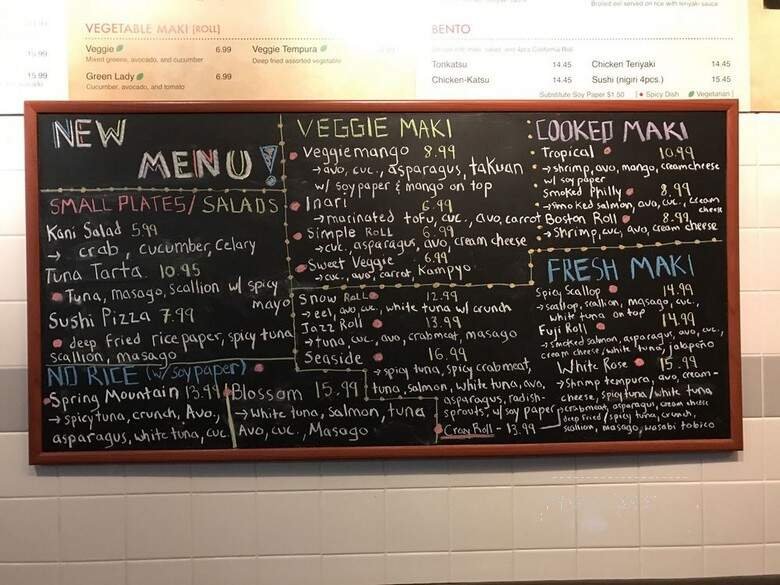 Broiled eel served on rice with teriyaki sauce
VEGETABLE MAKI [ROLL]
Veggie 6.99
Mixed greens, avocado, and cucumber
Green Lady 6.99
Cucumber, avocado, and tomato
Veggie Tempura 6.99
Deep fried assorted vegetable
15.99
15.99
BENTO
Tonkatsu 14.45
Chicken-Katsu 14.45
Chicken Teriyaki 14.45
Sushi (nigiri 4pcs.) 15.45
Substitute Soy Paper $1.50 [ Spicy Dish Vegetarian ]
NEW
MENU!
SMALL PLATES/SALADS
Kani Salad 5.99
→ crab, cucumber, Celary
Tuna Tarta 10.95
Tuna, masago, scallion w/ spicy
mayo
Sushi Pizza 7.99
deep fried rice paper, spicy tuna
scallion, masago
NO RICE (w/ soy paper)
Spring Mountain 13.99
→ spicy tuna, crunch, Avo,
asparagus, white tuna, cuc
Blossom 15.99
→ White tuna, Salmon, tuna
Avo, cuc., Masago
VEGGIE MAKI
Veggiemango 8.99
→ avo, cuc., asparagus, takuan
w/ soypaper & mango on top
Inari 6.99
→ marinated tofu, cuc., avo, carrot
Simple Roll 6.99
→ cuc., asparagus, avo, cream cheese
Sweet Veggie 6.99
→ cuc., avo, carrot Kampyo
Snow Roll 12.99
→ eel, avo cuc., white tuna w/ crunch
Jazz Roll 13.99
→ tuna, cuc., avo, crabmeat, masago
Seaside 16.99
→ spicy tuna, spicy crabmeat,
tuna, salmon, white tuna, avo,
asparagus, radish-
sprouts, w/ soy paper
COOKED MAKI
Tropical 10.99
→ shrimp, avo, mango, creamcheese
w/ soy paper
Smoked Philly 8.99
→ smoked salmon, avo, cuc., cream
cheese
Boston Roll 8.99
→ Shrimp, cuc, avo, cream cheese
FRESH MAKI
Spicy Scallop 14.99
→ scallop, scallion, masago, cuc.,
white tuna on top
Fuji Roll 14.99
→ smoked salmon, asparagus, avo, cuc.,
cream cheese/white tuna, jalapeño
White Rose 15.99
→ Shrimp tempura, avo, cream-
cheese, spicy tuna/white tuna
Crazy Roll - 13.99 → crabmeat, asparagus, cream cheese
deep fried/spicy tuna, crunch,
scallion, masago, wasabi tobico